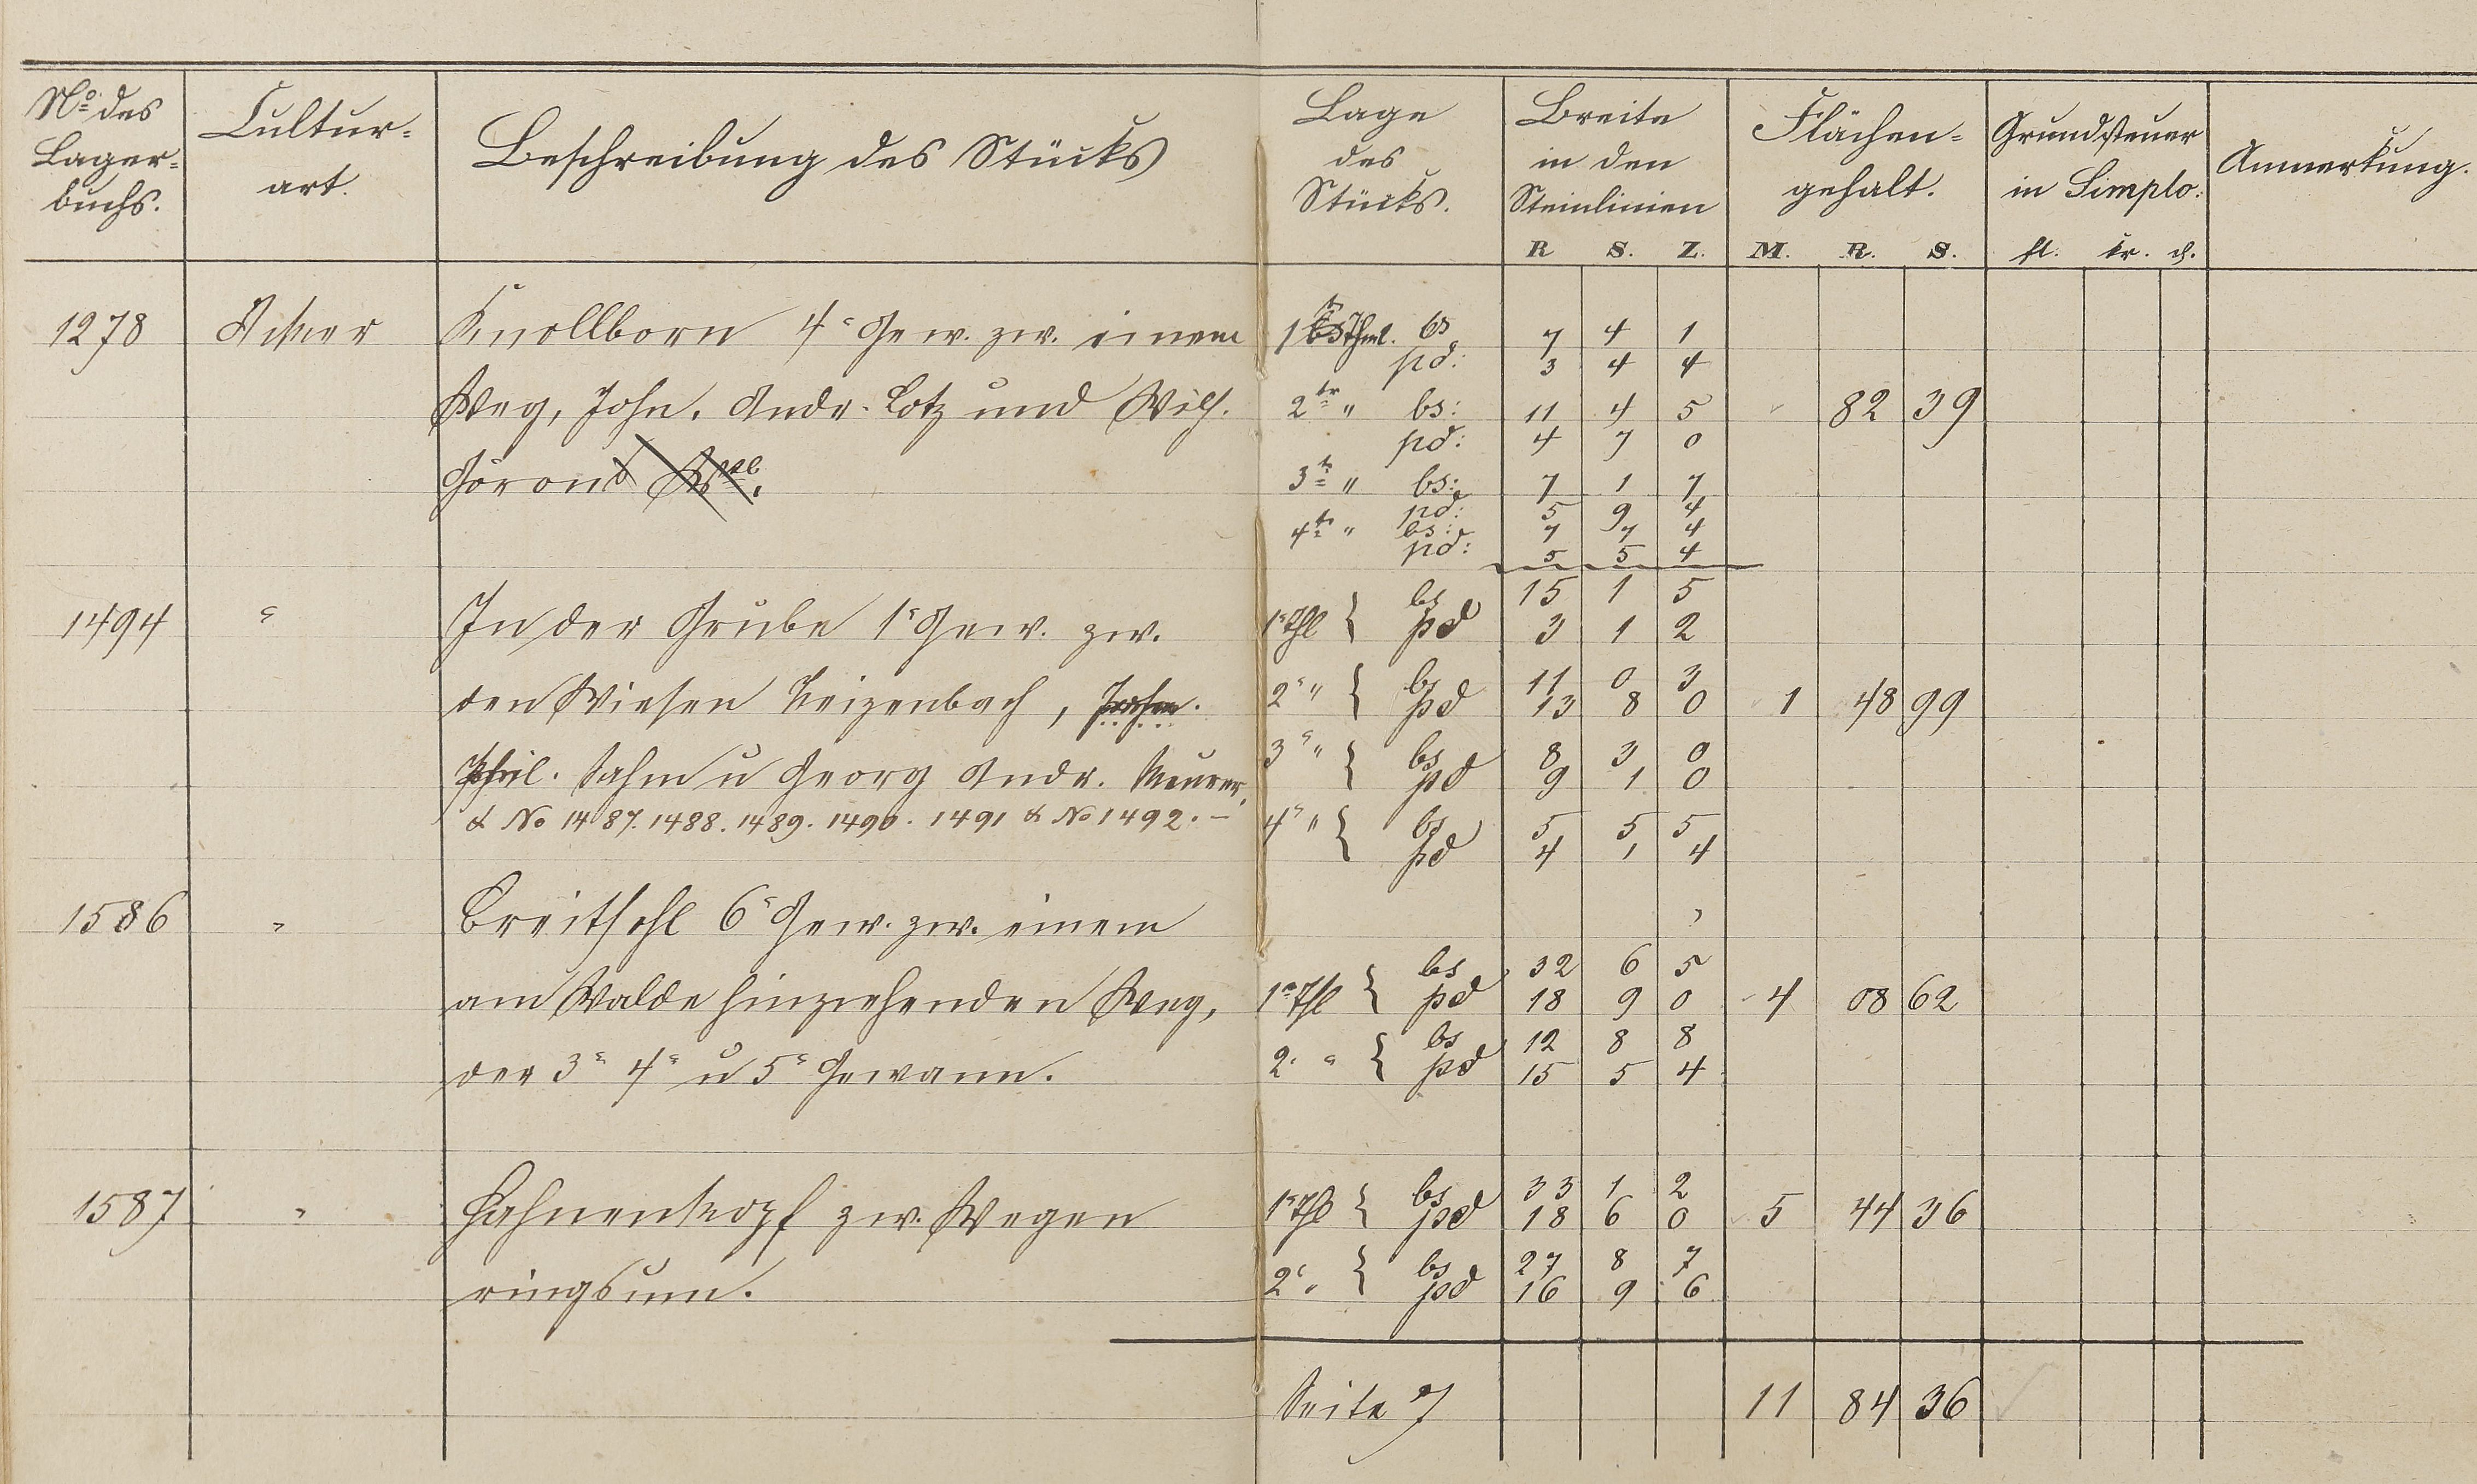 No des Lager= buchs.
Cultur= art.
Beschreibung des Stücks
Lage des Stücks.
Breite in den Steinlinien
Flächen= gehalt.
Grundsteuer in Simplo.
Anmerkung.
R S. Z. M. R. S. fl. kr. d.
1278 Acker Knollborn 4r Gew. zw. einem 1r Thl. bs 7 4 1
pd: 3 4 4
Weg, Joh. Andr. Lotz und Wilh. 2tr " bs: 11 4 5 82 39
pd: 4 7 0
3tr " bs: 7 1 7
pd: 5 9 4
4tr " bs: 7 7 4
pd: 5 5 4
1494 " In der Grube 1r Gew. zw. 1r Thl { bs 15 1 5
pd 3 1 2
den Wiesen Leizenbach, John. 2r " { bs 11 0 3
pd 13 8 0 1 48 99
Phil. Sahm u Georg Andr. Meurer, 3r " { bs 8 3 0
pd 9 1 0
& No 1487. 1488. 1489. 1490. 1491 & No 1492. – 4r " { bs 5 5 5
pd 4 1 4
1586 " Breitsohl 6r Gew. zw. einem
am Walde hinziehenden Weg, 1r Thl { bs 32 6 5
pd 18 9 0 4 08 62
der 3r 4r u 5r Gewann. 2. " { bs 12 8 8
pd 15 5 4
1587 " Hahnenkopf zw. Wegen 1r Thl { bs 33 1 2
pd 18 6 0 5 44 36
ringsum. 2r " { bs 27 8 7
pd 16 9 6
Seite 7 11 84 36